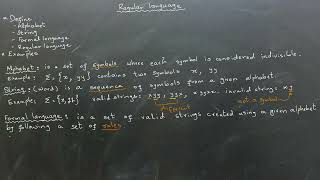 Regular language
* Define
- Alphabet
- String
- Formal language
- Regular language
* Examples
Alphabet: is a set of symbols where each symbol is considered indivisible.
Example: Σ = {x, yy} contains two symbols x, yy
String: (word) is a sequence of symbols from a given alphabet.
Example: Σ = {x, yy} valid strings: xyy, yyx, xyyx. invalid string: xy
different
not a symbol
Formal language: is a set of valid strings created using a given alphabet
by following a set of rules.